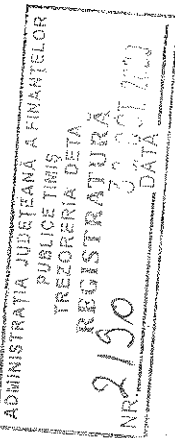 ADMINISTRATIA JUDEȚEANĂ A FINANȚELOR
PUBLICE TIMIS
TREZORERIA DETA
REGISTRATURĂ
NR. 2190
OCT
DATA